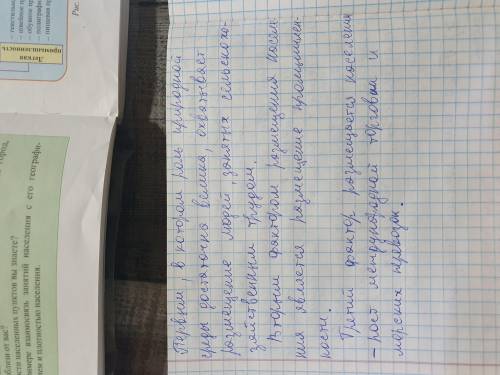 Первым, в котором роль природной
среды достаточно велика, охватывает
размещение людей, занятых сельскохо-
зяйственным трудом.
Вторым фактором размещения населе-
ния является размещение промышлен-
ности.
Третий фактор размещается населения
– рост международной торговли и
морских перевозок.
Легкая
промышленность
– швейное
– обувное
Рис.
город,
блюзи от вас?
сти населенных пунктов вы знаете?
мере взаимосвязь занятий населения с его географи-
ем и плотностью населения.